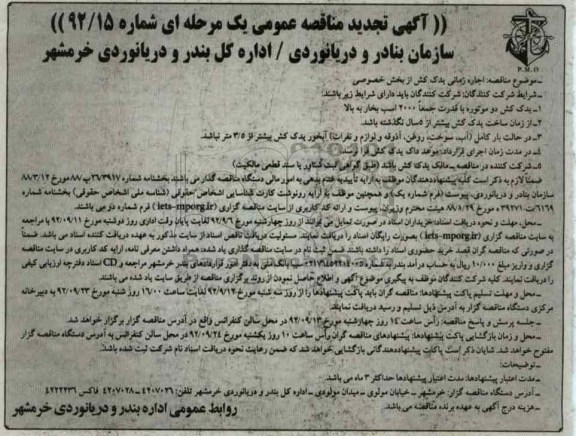 (( آگهی تجدید مناقصه عمومی یک مرحله ای شماره ۹۲/۱۵ ))
سازمان بنادر و دریانوردی / اداره کل بندر و دریانوردی خرمشهر
P.M.O
ـ موضوع مناقصه: اجاره زمانی یدک کش از بخش خصوصی
ـ شرایط شرکت کنندگان: شرکت کنندگان باید دارای شرایط زیر باشند:
۱ـ یدک کش دو موتوره با قدرت جمعاً ۲۰۰۰ اسب بخار به بالا
۲ـ از زمان ساخت یدک کش بیشتر از ۵سال نگذشته باشد.
۳ـ در حالت بار کامل (آب، سوخت، روغن، آذوقه و لوازم و نفرات) آبخور یدک کش بیشتر از ۳/۵ متر نباشد.
۴ـ در مدت زمان اجرای قرارداد، موعد داک یدک کش فرا نرسد.
۵ـ شرکت کننده در مناقصه ـ مالک یدک کش باشد (طبق گواهی ثبت شناور یا سند قطعی مالکیت)
ضمناً لازم به ذکر است کلیه پیشنهاددهندگان موظف به ارایه تأییدیه ختم بدهی به امور مالی دستگاه مناقصه گذار می باشند بخشنامه شماره
سازمان بنادر و دریانوردی، پیوست (فرم شماره یک) و همچنین موظف به ارایه رونوشت کارت شناسایی اشخاص حقوقی (شناسه ملی اشخاص حقوقی) بخشنامه شماره
هیئت محترم وزیران، پیوست و ارائه کد کاربری از سایت مناقصه گزاری (iets-mporg.ir) فرم شماره دو می باشند.
ـ محل، مهلت و نحوه دریافت اسناد: خریداران اسناد در صورت تمایل می توانند از روز چهارشنبه مورخ ۹۲/۹/۶ لغایت پایان وقت اداری روز دوشنبه مورخ ۹۲/۰۹/۱۱ با مراجعه
به سایت مناقصه گزاری (iets-mporg.ir) بصورت رایگان اسناد را دریافت نمایند. مسئولیت دریافت ناقص اسناد از سایت مذکور به عهده دریافت کننده اسناد می باشد. ضمناً
در صورتی که مناقصه گران قصد خرید حضوری اسناد را داشته باشند ضمن ثبت نام در سایت مناقصه گذاری یاد شده، همراه داشتن معرفی نامه، ارایه کد کاربری در سایت مناقصه
گزاری و واریز مبلغ ۱۰۰/۰۰۰ ریال به حساب درآمد بندر بانک ملی به دفتر امور قراردادهای بندر خرمشهر مراجعه و CD اسناد دفترچه ارزیابی کیفی
را دریافت نمایند. کلیه شرکت کنندگان موظف به پیگیری موضوع آگهی و اطلاع حاصل نمودن از روند برگزاری مناقصه از طریق سایت یاد شده می باشند.
ـ محل و مهلت تسلیم پاکت پیشنهادها: مناقصه گران باید پاکت پیشنهادها را از روز سه شنبه مورخ ۹۲/۹/۱۲ لغایت ساعت ۱۶/۰۰ روز شنبه مورخ ۹۲/۰۹/۲۳ به دبیرخانه
مرکزی دستگاه مناقصه گزار به آدرس ذیل تسلیم و رسید دریافت نمایند.
ـ جلسه پرسش و پاسخ مناقصه: رأس ساعت ۱۴ روز چهارشنبه مورخ ۹۲/۰۹/۱۳ در محل سالن کنفرانس واقع در آدرس مناقصه گزار برگزار خواهد شد.
ـ محل و زمان بازگشایی پاکت پیشنهادها: پیشنهادهای مناقصه گران رأس ساعت ۱۰ روز یکشنبه مورخ ۹۲/۰۹/۲۴ در محل سالن کنفرانس به آدرس دستگاه مناقصه گزار
مفتوح خواهد شد. شایان ذکر است پاکات پیشنهاددهندگانی بازگشایی خواهد شد که ضمن رعایت نحوه دریافت اسناد نام شرکت ثبت شده باشد.
ـ توضیحات:
ـ مدت اعتبار پیشنهادها: مدت اعتبار پیشنهادها حداکثر ۳ ماه می باشد.
ـ آدرس دستگاه مناقصه گزار: خرمشهر ـ خیابان مولوی ـ میدان مولودی ـ اداره کل بندر و دریانوردی خرمشهر تلفن: ۴۲۰۷۰۲۶ـ۴۲۰۷۰۲۸ فاکس ۴۲۲۲۴۳۶
ـ هزینه درج آگهی به عهده برنده مناقصه می باشد.
روابط عمومی اداره بندر و دریانوردی خرمشهر